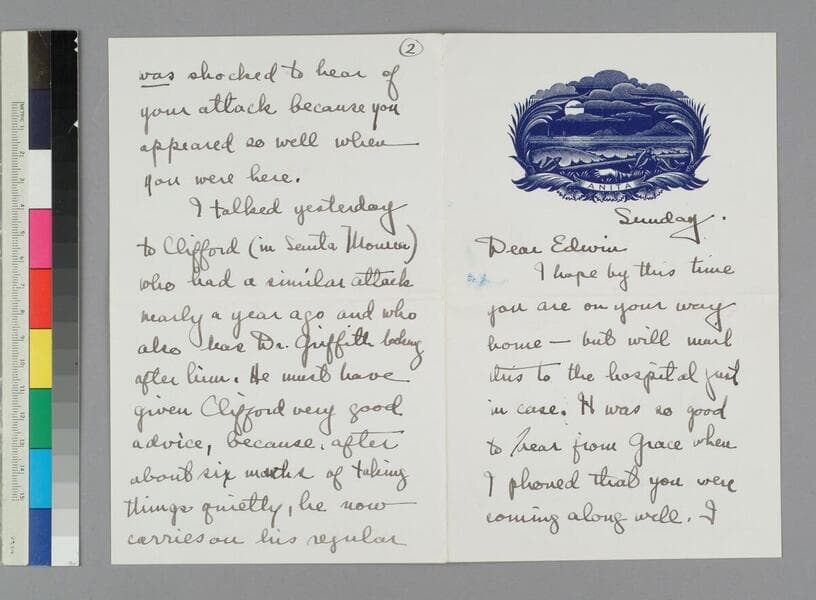 ANITA
Sunday.
Dear Edwin
I hope by this time
you are on your way
home — but will mail
this to the hospital just
in case. It was so good
to hear from Grace when
I phoned that you were
coming along well. I
2
was shocked to hear of
your attack because you
appeared so well when
you were here.
I talked yesterday
to Clifford (in Santa Monica)
who had a similar attack
nearly a year ago and who
also has Dr. Griffith looking
after him. He must have
given Clifford very good
advice, because, after
about six months of taking
things quietly, he now
carries on his regular